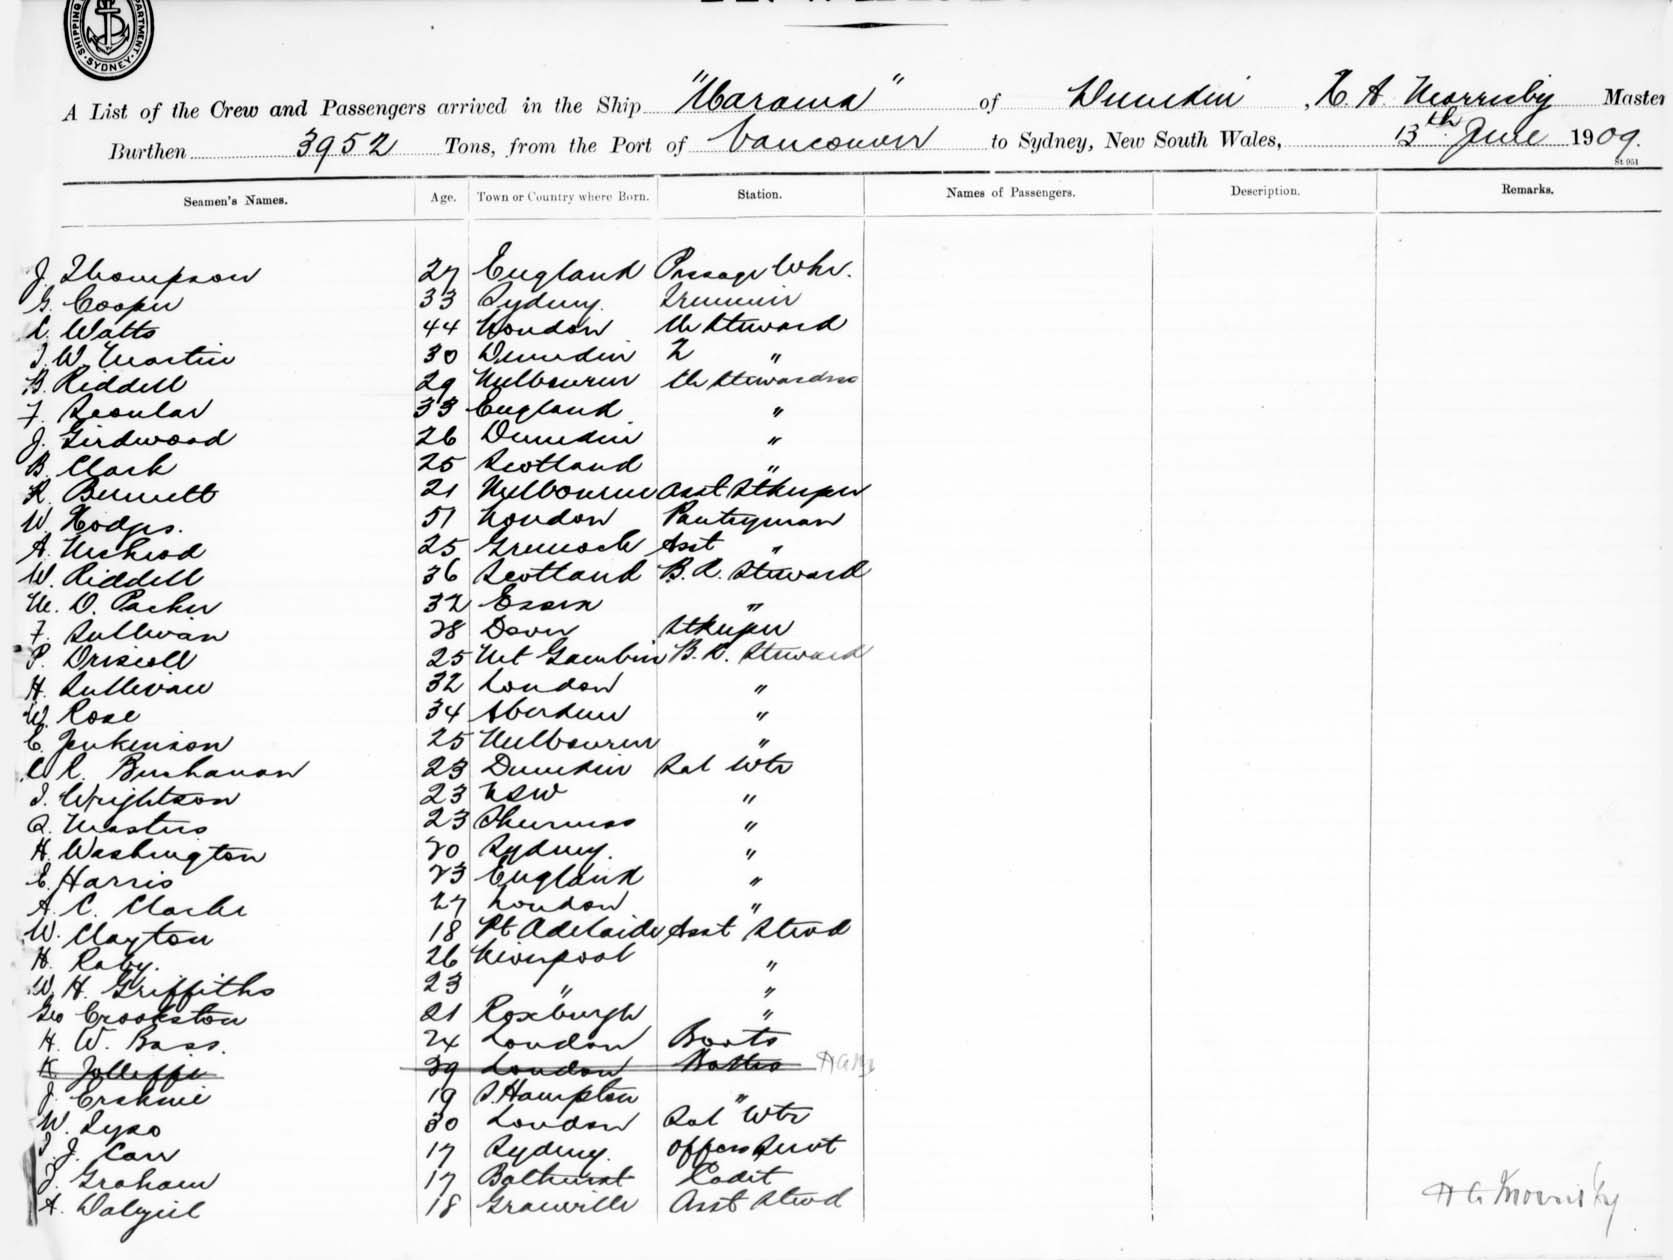 SHIPPING DEPARTMENT. SYDNEY.
A List of the Crew and Passengers arrived in the Ship "Marama" of Dunedin, H. A. Morrisby Master
Burthen 3952 Tons, from the Port of Vancouver to Sydney, New South Wales, 13th June 1909.
St 951
Seamen's Names. Age. Town or Country where Born. Station. Names of Passengers. Description. Remarks.
J. Thompson 27 England Passage Wtr.
G. Cooper 33 Sydney.
C. Watts 44 London Ch Steward
J. W. Martin 30 Dunedin 2 "
B. Riddell 29 Melbourne Ch Stewardess
F. Scoular 33 England "
J. Girdwood 26 Dunedin "
B. Clark 25 Scotland "
R. Bennett 21 Melbourne Asst Stkeeper
W. Hodges. 51 London Pantryman
A. McLeod 25 Greenock Asst "
W. Riddell 36 Scotland B. R. Steward
M. O. Packer 32 Essex "
F. Sullivan 28 Dover Stkeeper
P. Driscoll 25 Mt Gambier B. R. Steward
H. Sullivan 32 London "
W. Rose 34 Aberdeen "
E. Jenkinson 25 Melbourne "
C. R. Buchanan 23 Dunedin Sal Wtr
J. Wrightson 23 NSW "
Masters 23 Sheerness "
H. Washington 20 Sydney. "
E. Harris 23 England "
A. C. Clarke 27 London "
W. Clayton 18 Pt Adelaide Asst Stwd
H. Raby. 26 Liverpool "
W. H. Griffiths 23 " "
Geo Crookston 21 Roxburgh "
H. W. Bass. 24 London Boots
K 39 London
J. Erskine 19 S. Hampton "
W. Syso 30 London Sal Wtr
J. Carr 17 Sydney. Offcrs Servt
J. Graham 17 Bathurst Cadet
A. Dalziel 18 Granville Asst Stwd
H A Morrisby